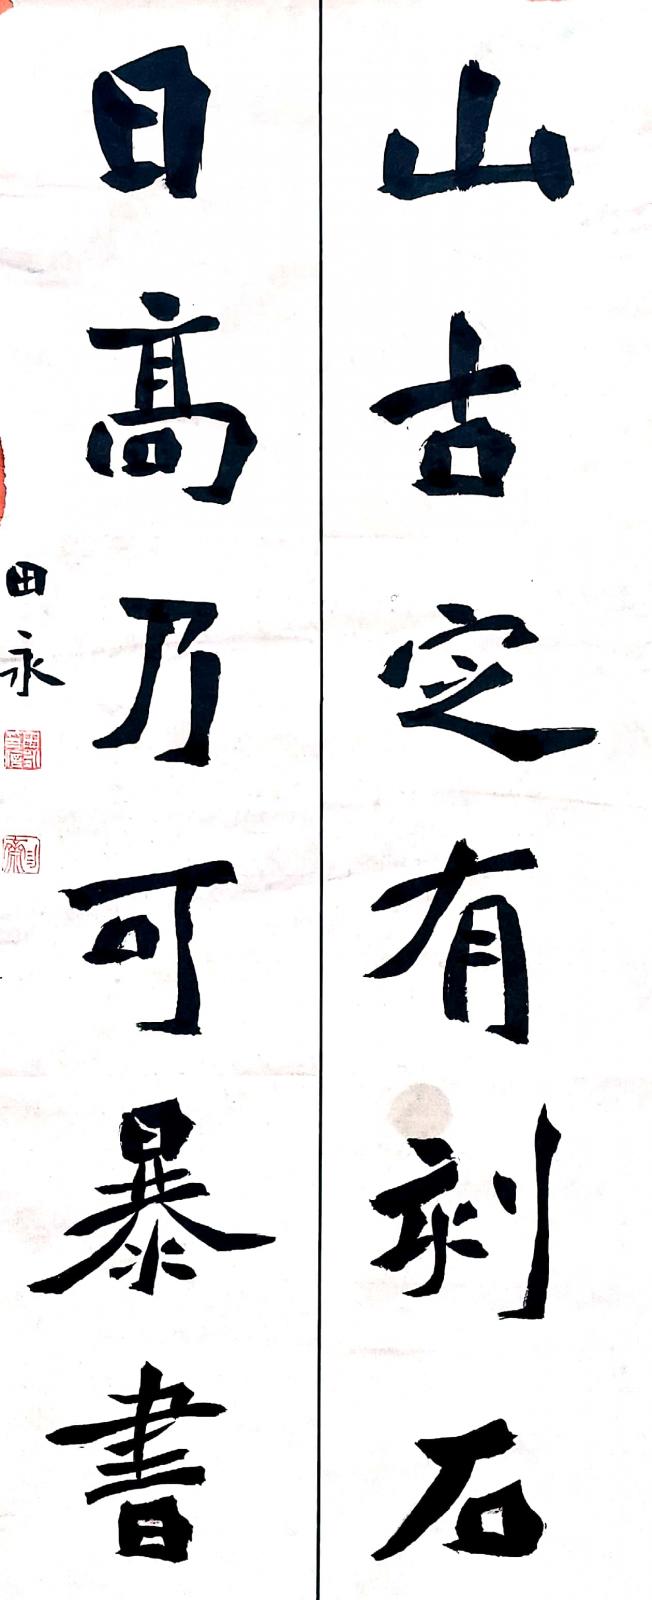 山古定有刻石
日高乃可暴書
田永